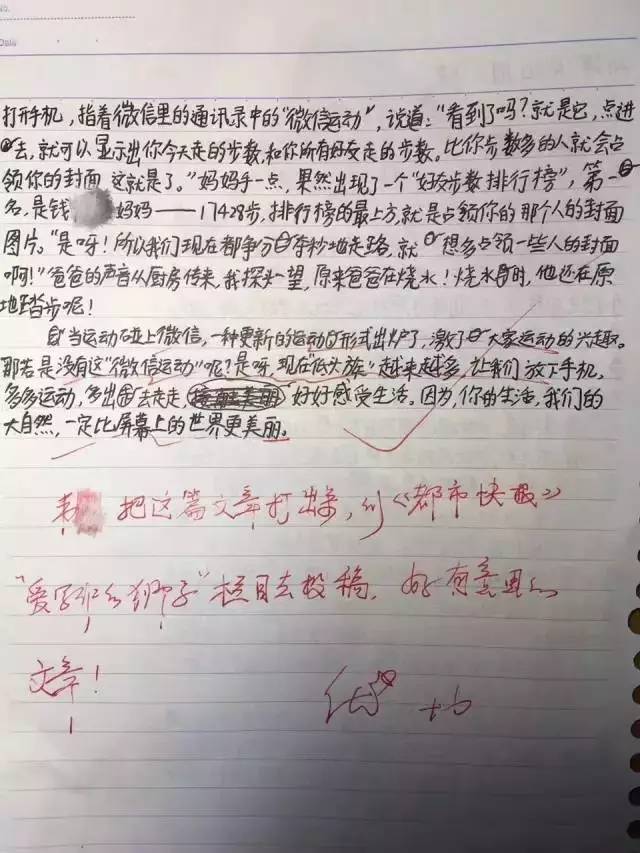 No.
Date
打开手机，指着微信里的通讯录中的“微信运动”，说道：“看到了吗？就是它，点进
去，就可以显示出你今天走的步数，和你所有好友走的步数。比你步数多的人就会占
领你的封面，这就是了。”妈妈手一点，果然出现了一个“好友步数排行榜”，第一
名，是钱 妈妈——17428步，排行榜的最上方，就是占领你的那个人的封面
图片。“是呀！所以我们现在都争分夺秒地走路，就想多占领一些人的封面
啊！”爸爸的声音从厨房传来，我探头一望，原来爸爸在烧水！烧水时，他还在原
地踏步呢！
当运动碰上微信，一种更新的运动形式出炉了，激了大家运动的兴趣。
那若是没有这“微信运动”呢？是呀，现在“低头族”越来越多，让我们放下手机，
多多运动，多出去走走，好好感受生活。因为，你的生活，我们的
大自然，一定比屏幕上的世界更美丽。
把这篇文章打出来，向《都市快报》
“爱写作的狮子”栏目去投稿，好有意思的
文章！
优 +6